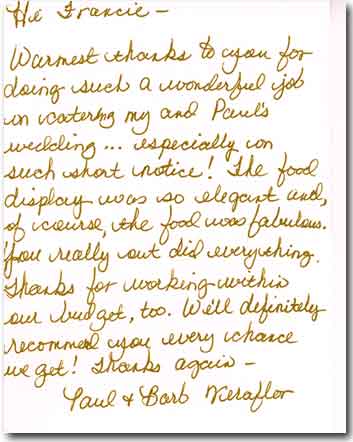 Hi Francie –
Warmest thanks to you for
doing such a wonderful job
in catering my and Paul's
wedding... especially on
such short notice! The food
display was so elegant and,
of course, the food was fabulous.
You really out did everything.
Thanks for working within
our budget, too. We'll definitely
recommend you every chance
we get! Thanks again –
Paul & Barb